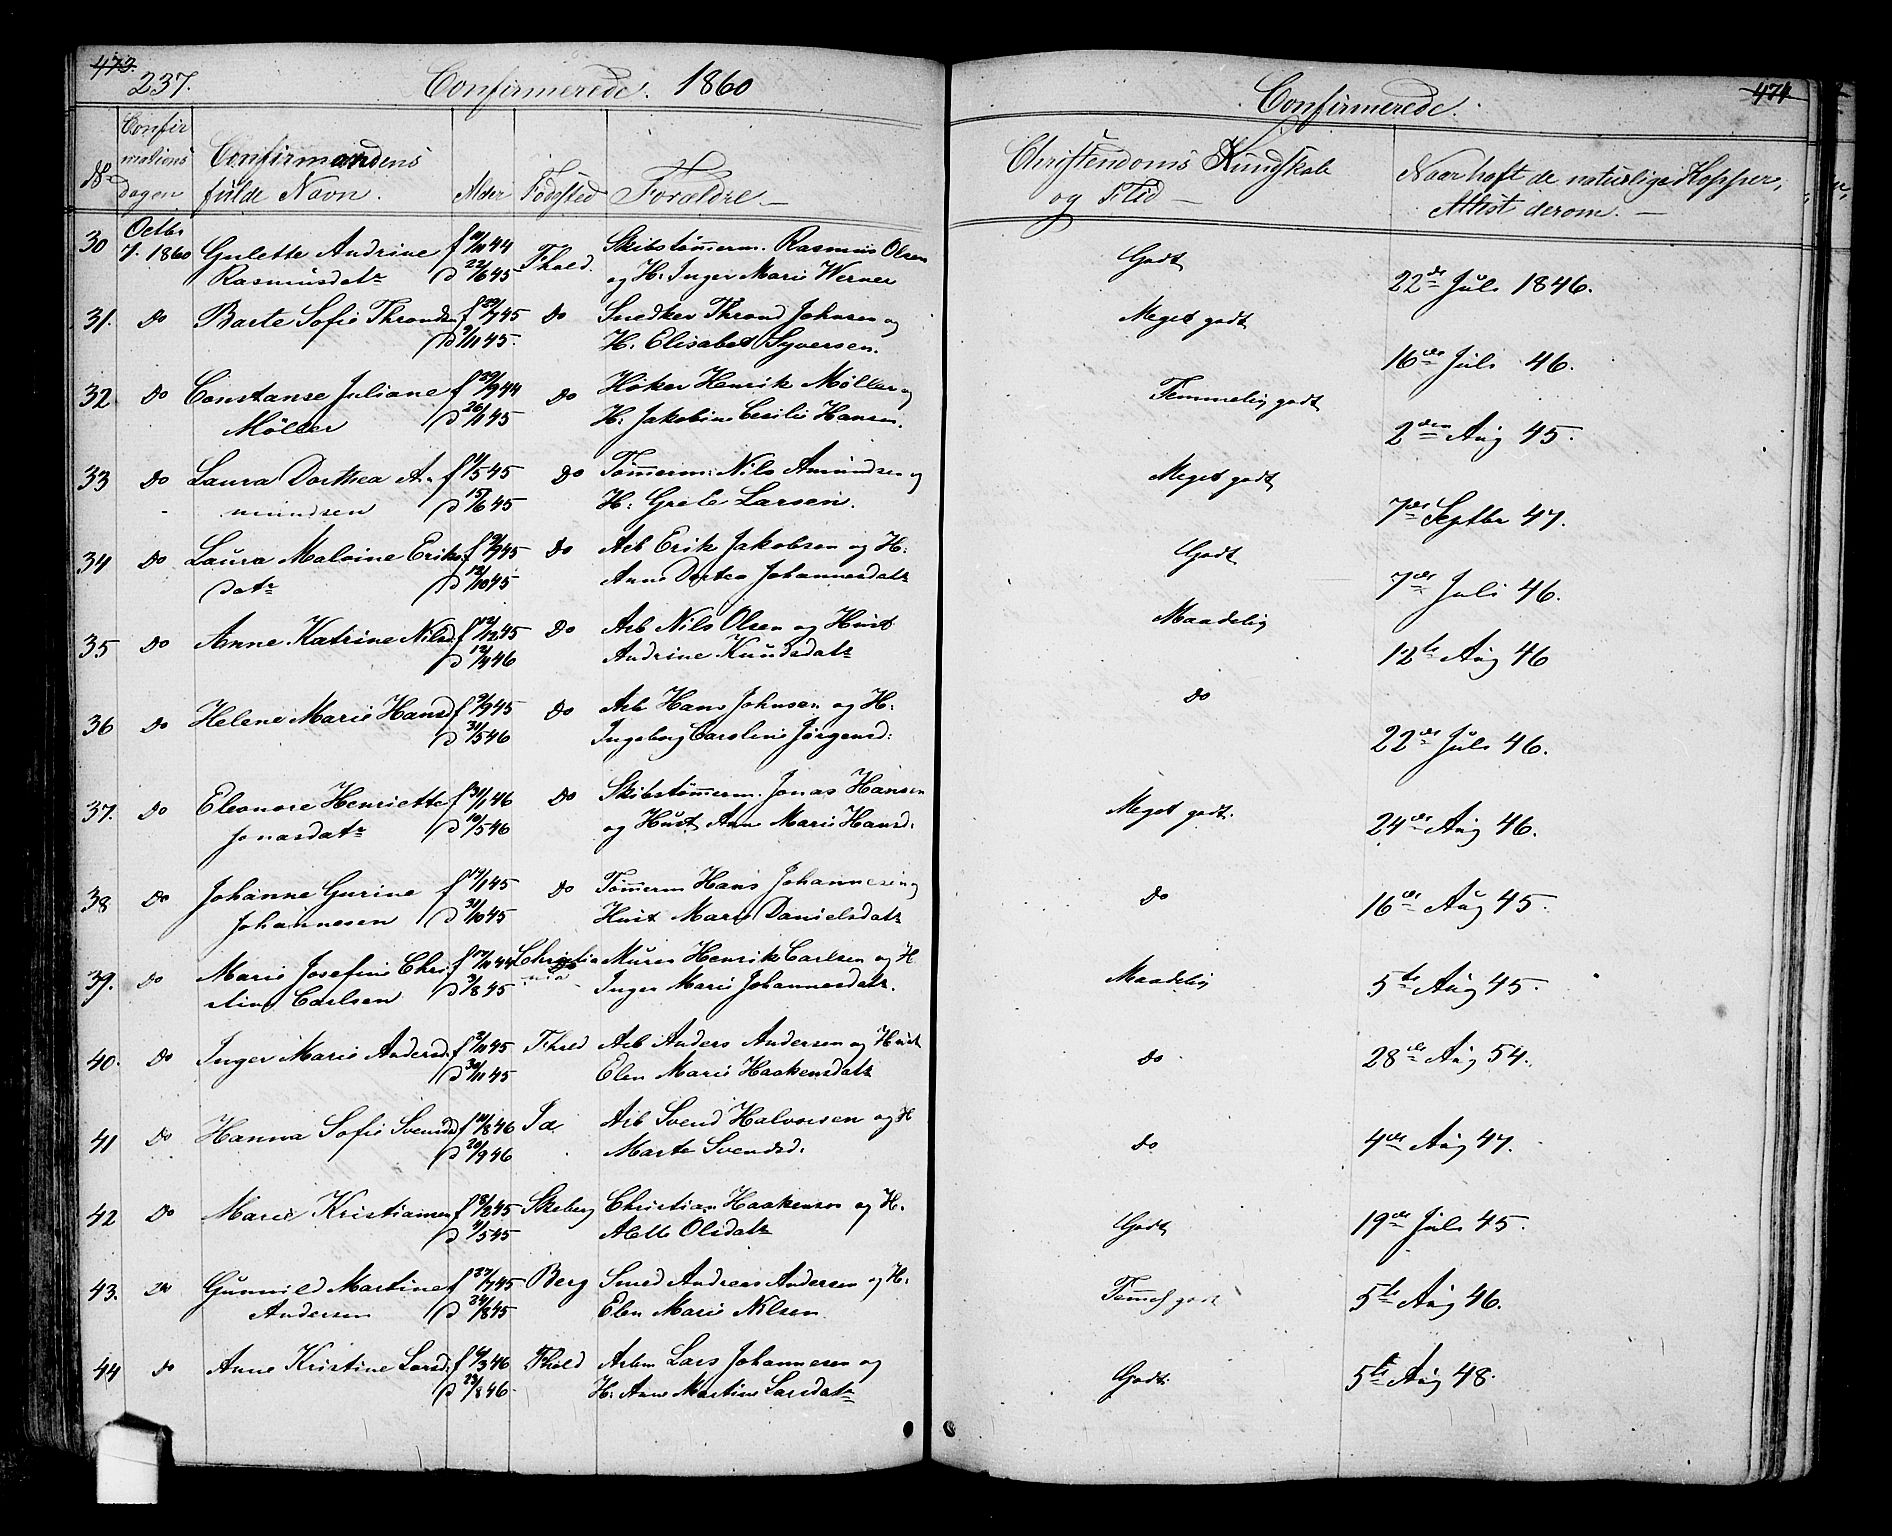 473.
237.
Confirmerede. 1860
Confirmerede.
474
No
Confir
mations
dagen
Confirmandens
fulde Navn.
Alder
Fødested
Forældre.
Christendoms Kundskab
og Flid
Naar haft de naturlige Kopper,
Attest derom.
30 Octbr 7. 1860 Gulette Andrine f 10/11 44 Fhald. Skibstømerm. Rasmus Olsen Godt 22de Juli 1846.
Rasmusdatr d 22/6 45 og H: Inger Marie Werner
31. Do Barte Sofie Thronds f 29/7 45 Do Snedker Thrond Johnsen og Meget godt 16de Juli 46.
d 9/11 45. H. Elisabet Syversen.
32 Do Constanse Juliane f 29/9 44 Do Høker Henrik Møller og Temmelig godt 2den Aug 45.
Møller d 26/1 45 H: Jakobine Cecilie Hansen.
33 Do Laura Dorthea A- f 11/5 45 Do Tømerm: Nils Amundsen og Meget godt 7de Septbr 47.
mundsen d 15/6 45 H: Grete Larsen.
34 Do Laura Malvine Eriks f 19/7 45 Do Arb Erik Jakobsen og H: Godt 7de Juli 46.
datr d 12/10 45 Anne Dortea Johannesdatr
35 Do Anne Katrine Nilsd f 12/12 45 Do Arb Nils Olsen og Hust Maadelig 12te Aug 46
d 12/4 46 Andrine Knudsdatr
36 Do Helene Marie Hansd f 9/9 45 Do Arb Hans Johnsen og H: Do 22de Juli 46.
d 31/5 46 Ingeborg Caroline Jørgensd:
37. Do Eleonore Henriette f 31/1 46 Do Skibstømerm. Jonas Hansen Meget godt. 24de Aug 46.
Jonasdatr d 10/5 46 og Hust Ane Marie Hansd:
38 Do Johanne Gurine f 17/1 45 Do Tømerm Hans Johannesen og Do 16de Aug 45.
Johannesen d 31/10 45 Hust Marie Danielsdatr
39. Do Marie Josefine Chri f 17/11 44 Christia Murer Henrik Carlsen og H Maadelig 5te Aug 45.
stine Carlsen d 3/8 45 nia Inger Marie Johannesdatr.
40. Do Inger Marie Andersd f 2/11 45 Fhald Arb Anders Andersen og Hust Do 28de Aug 54.
d 30/11 45 Elen Marie Haakensdatr
41 Do Hanna Sofie Svensd f 14/8 46 Id Arb Svend Halvorsen og H Do 4de Aug 47.
d 20/9 46 Marte Svendsd.
42 Do Marie Kristiansen f 18/2 45 Skeberg Christian Haakensen og H. Godt 19de Juli 45.
d 4/5 45 Alette Olsdatr
43. Do Gunnild Martine f 27/7 45 Berg Smed Andreas Andersen og H: Temel godt 5te Aug 46.
Andersen d 24/8 45 Elen Marie Nilsen
44 Do Anne Kristine Larsd. f 6/3 46 Fhald Arbm Lars Johannesen og Godt. 5te Aug 48.
d 23/8 46. H: Anne Martine Larsdatr